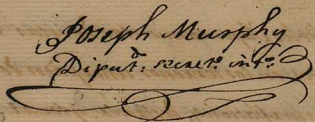 Joseph Murphy
Diput.d secret.o int.o